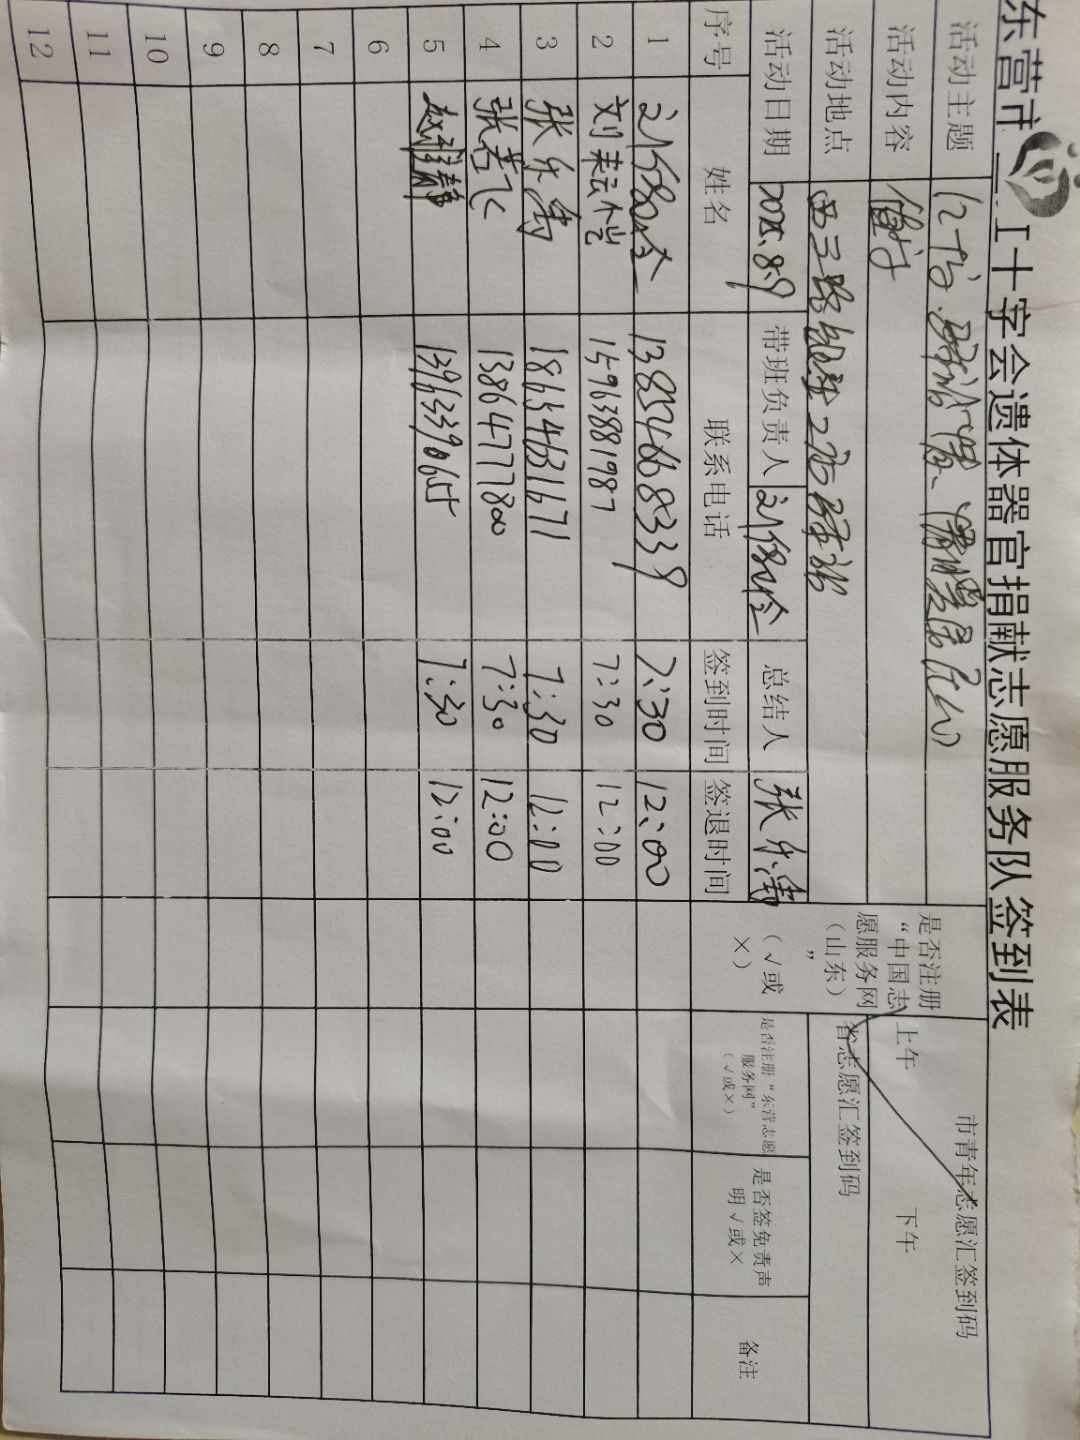 东营市 红十字会遗体器官捐献志愿服务队签到表
活动主题
市青年志愿汇签到码
活动内容 值守
上午 下午
活动地点
省志愿汇签到码
活动日期 2025.8.9 带班负责人 总结人 张乐涛
是否注册“中国志愿服务网（山东）”（√或×）
是否注册“东营志愿服务网”（√或×）
是否签免责声明√或×
备注
序号 姓名 联系电话 签到时间 签退时间
1 13854668339 7:30 12:00
2 15963881987 7:30 12:00
3 张乐涛 18654631671 7:30 12:00
4 张若飞 13864777800 7:30 12:00
5 赵雅静 13963390655 7:30 12:00
6
7
8
9
10
11
12